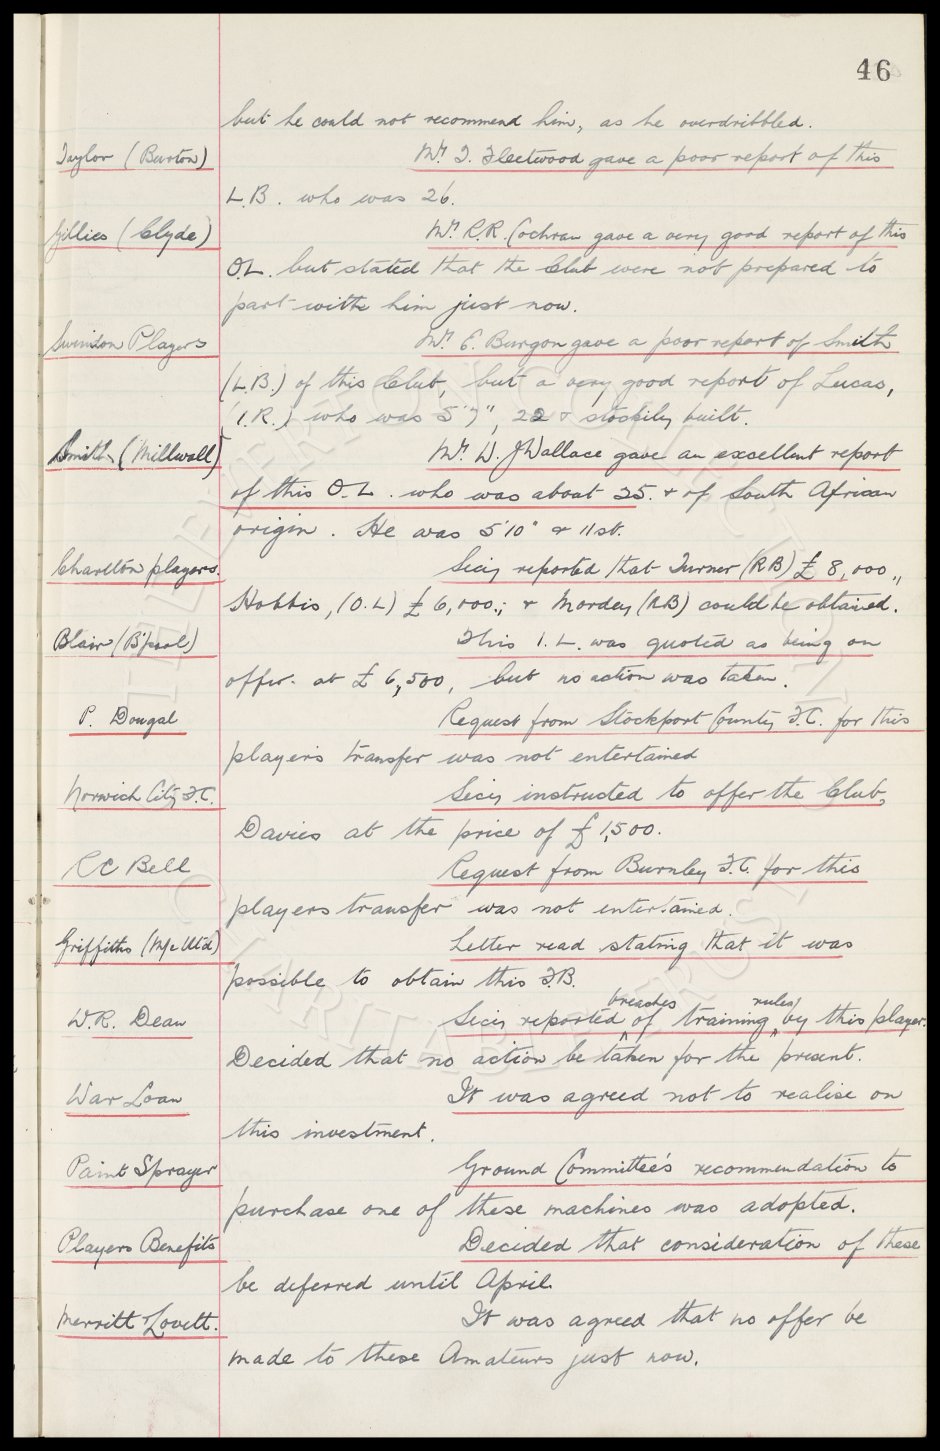 46
but he could not recommend him, as he overdribbled.
Taylor (Burton) Mr. T. Fleetwood gave a poor report of this
L.B. who was 26.
Gillies (Clyde) Mr. R.R. Cochran gave a very good report of this
O.L. but stated that the Club were not prepared to
part with him just now.
Swindon Players Mr. E. Burgon gave a poor report of Smith
(L.B.) of this Club, but a very good report of Lucas,
(I.R.) who was 5'7", 22 & stockily built.
Smith (Millwall) Mr. W. J Wallace gave an excellent report
of this O.L. who was about 25. & of South African
origin. He was 5'10" & 11st.
Charlton players. Secy reported that Turner (RB) £8,000,,
Hobbis, (O.L) £6,000.; & Mordey (RB) could be obtained.
Blair (B'pool) This I.L. was quoted as being on
offer at £6,500, but no action was taken.
P. Dougal Request from Stockport County F.C. for this
player's transfer was not entertained
Norwich City F.C. Secy instructed to offer the Club,
Davies at the price of £1,500.
R C Bell Request from Burnley F.C. for this
players transfer was not entertained.
Griffiths (M/c Utd) Letter read stating that it was
possible to obtain this F.B.
W.R. Dean Secy reported breaches of training rules by this player.
Decided that no action be taken for the present.
War Loan It was agreed not to realise on
this investment.
Paint Sprayer Ground Committee's recommendation to
purchase one of these machines was adopted.
Players Benefits Decided that consideration of these
be deferred until April.
Merritt & Lovett. It was agreed that no offer be
made to these Amateurs just now.
THE EVERTON COLLECTION
CHARITABLE TRUST